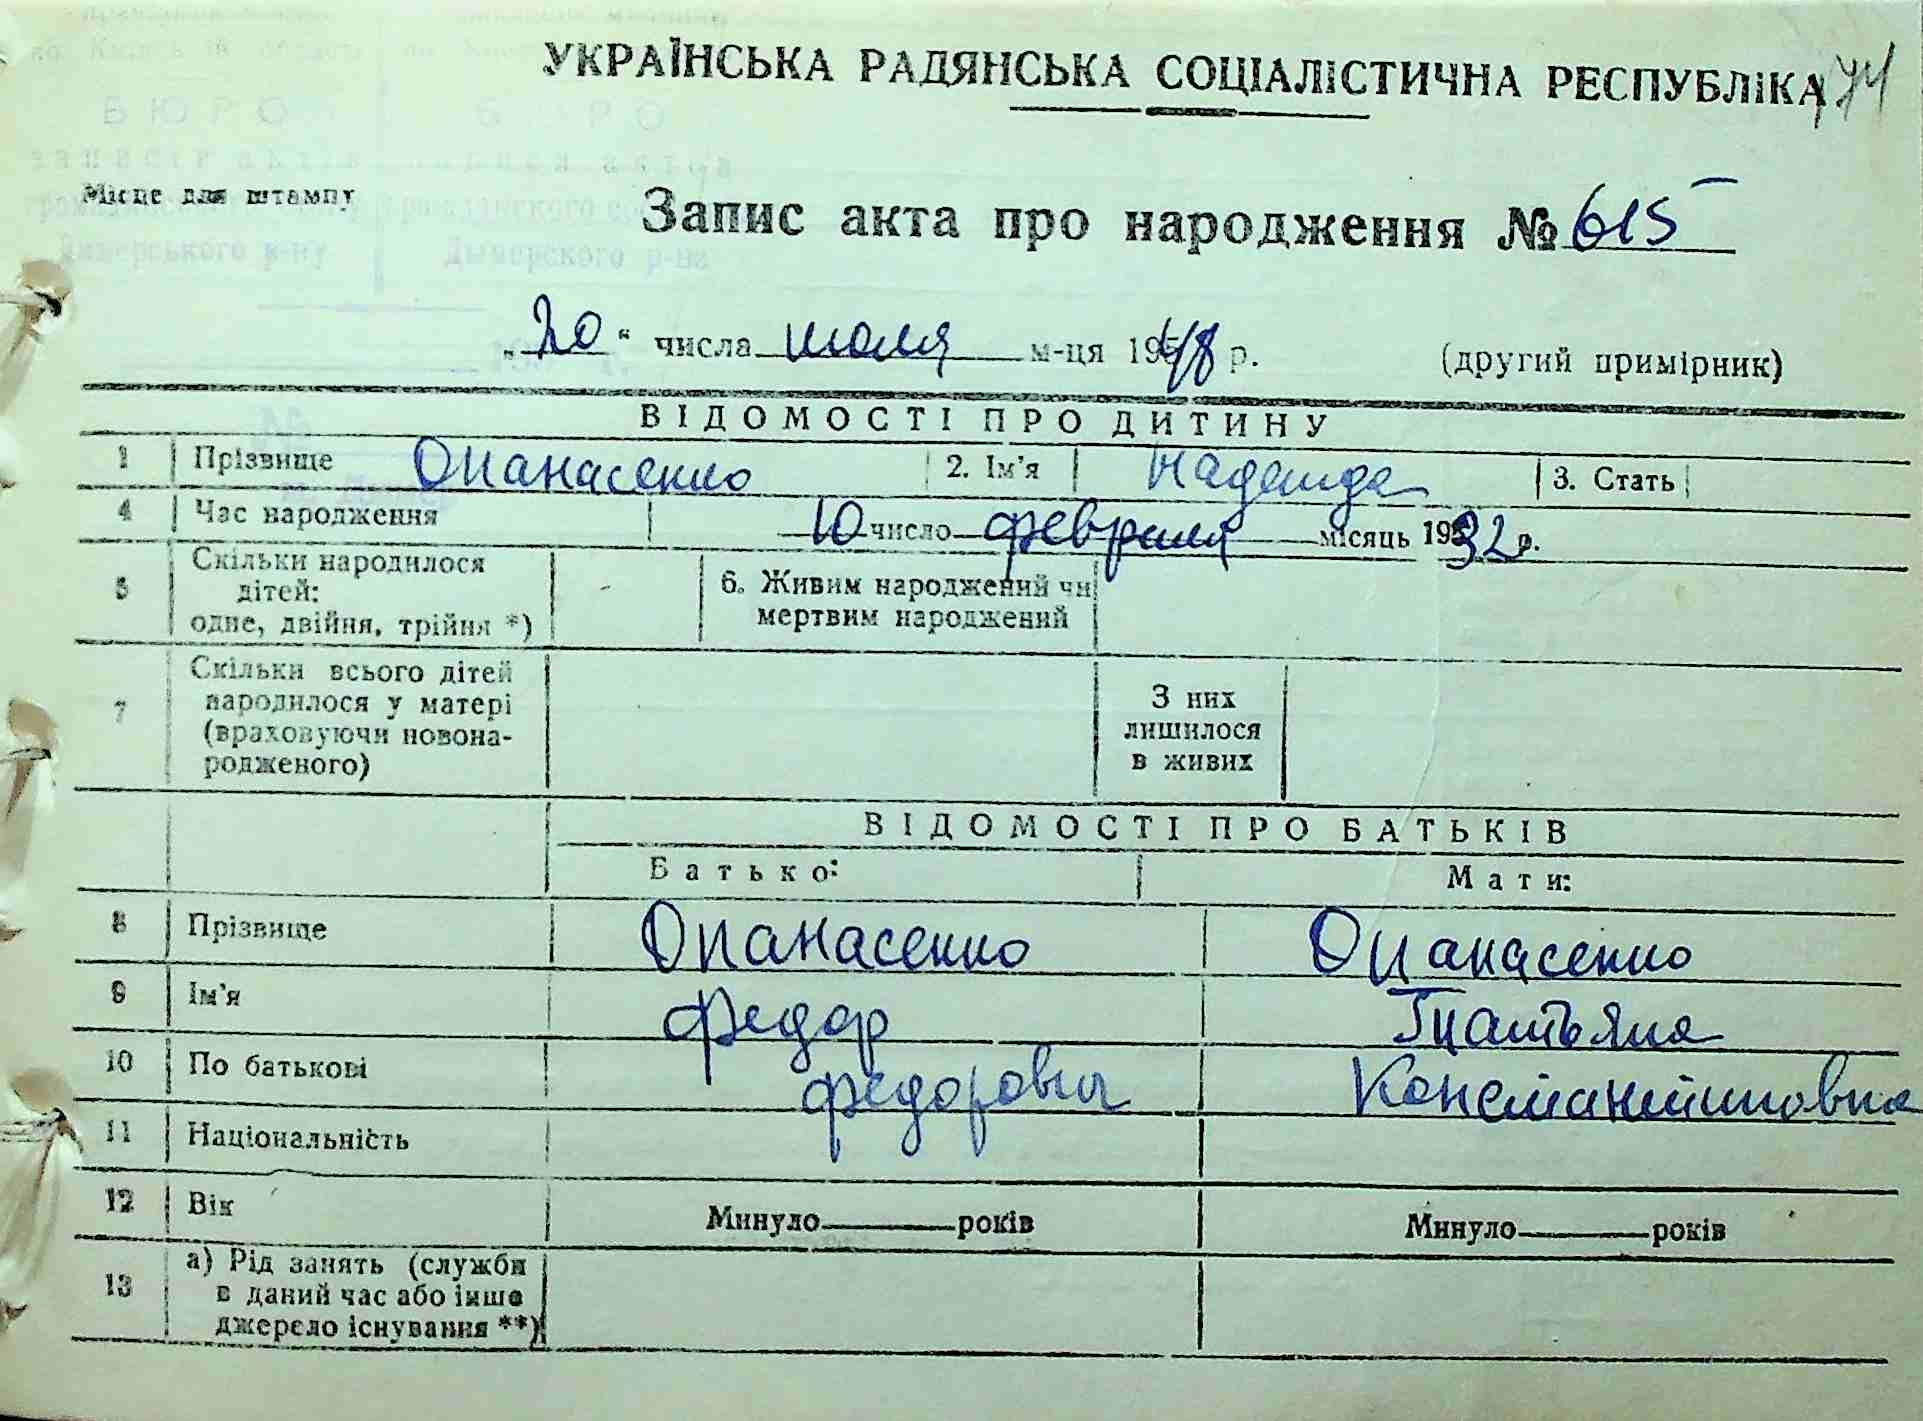 УКРАЇНСЬКА РАДЯНСЬКА СОЦІАЛІСТИЧНА РЕСПУБЛІКА
Місце для штампу
Запис акта про народження № 615
„20“ числа июля м-ця 1948 р. (другий примірник)
ВІДОМОСТІ ПРО ДИТИНУ
1 Прізвище Опанасенко 2. Ім'я Надежда 3. Стать
4 Час народження 10 число февраля місяць 1932 р.
5 Скільки народилося дітей: одне, двійня, трійня *) - 6. Живим народжений чи мертвим народжений
7 Скільки всього дітей народилося у матері (враховуючи новонародженого) З них лишилося в живих
ВІДОМОСТІ ПРО БАТЬКІВ
Батько: Мати:
8 Прізвище Опанасенко Опанасенко
9 Ім'я Федор Татьяна
10 По батькові Федорович Константиновна
11 Національність
12 Вік Минуло років Минуло років
13 а) Рід занять (служби в даний час або інше джерело існування **)